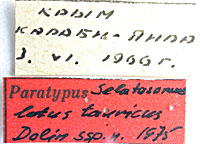 КРЫМ
КАРАБИ-ЯЙЛА
3. VI. 1900г.
Paratypus Selatosomus
latus tauricus
Dolin ssp. n. 1975